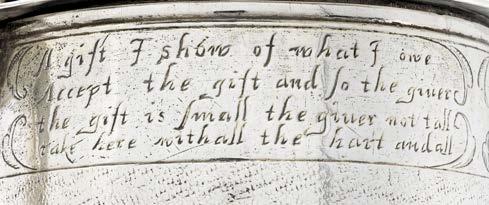 A gift I show of what I owe
Accept the gift and so the giver
the gift is small the giuer not tall
take here withall the hart and all